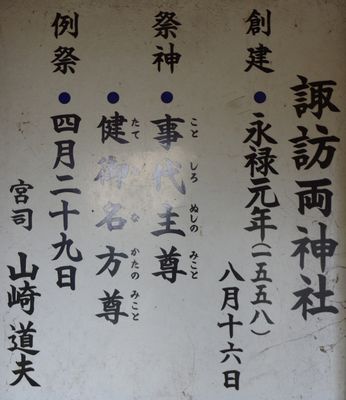 諏訪両神社
創建●永禄元年(一五五八)
八月十六日
祭神●事代主尊
こと しろ ぬしの みこと
●健御名方尊
たて み な かたの みこと
例祭●四月二十九日
宮司 山崎道夫